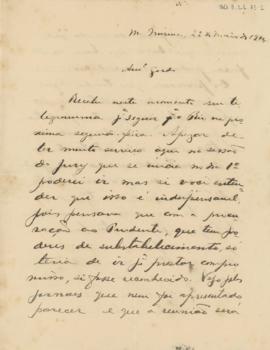 M. Mirim, 22 de Maio de 19
Am.º
Recebi neste momento seu te
legramma p.ª seguir p.ª o Rio na pro
xima segunda-feira. Apezar de
ter muito serviço aqui na sessão
do Jury que se inicia no dia 1º
poderei ir mas si você enten
der que isso é indispensavel,
pois pensava que com a procu
ração ao Prudente, que tem po
deres de substabelecimento, só
teria de ir p.ª prestar compro
misso, si fosse reconhecido. Vejo pelos
jornaes que nem foi apresentado
parecer e que a reunião será